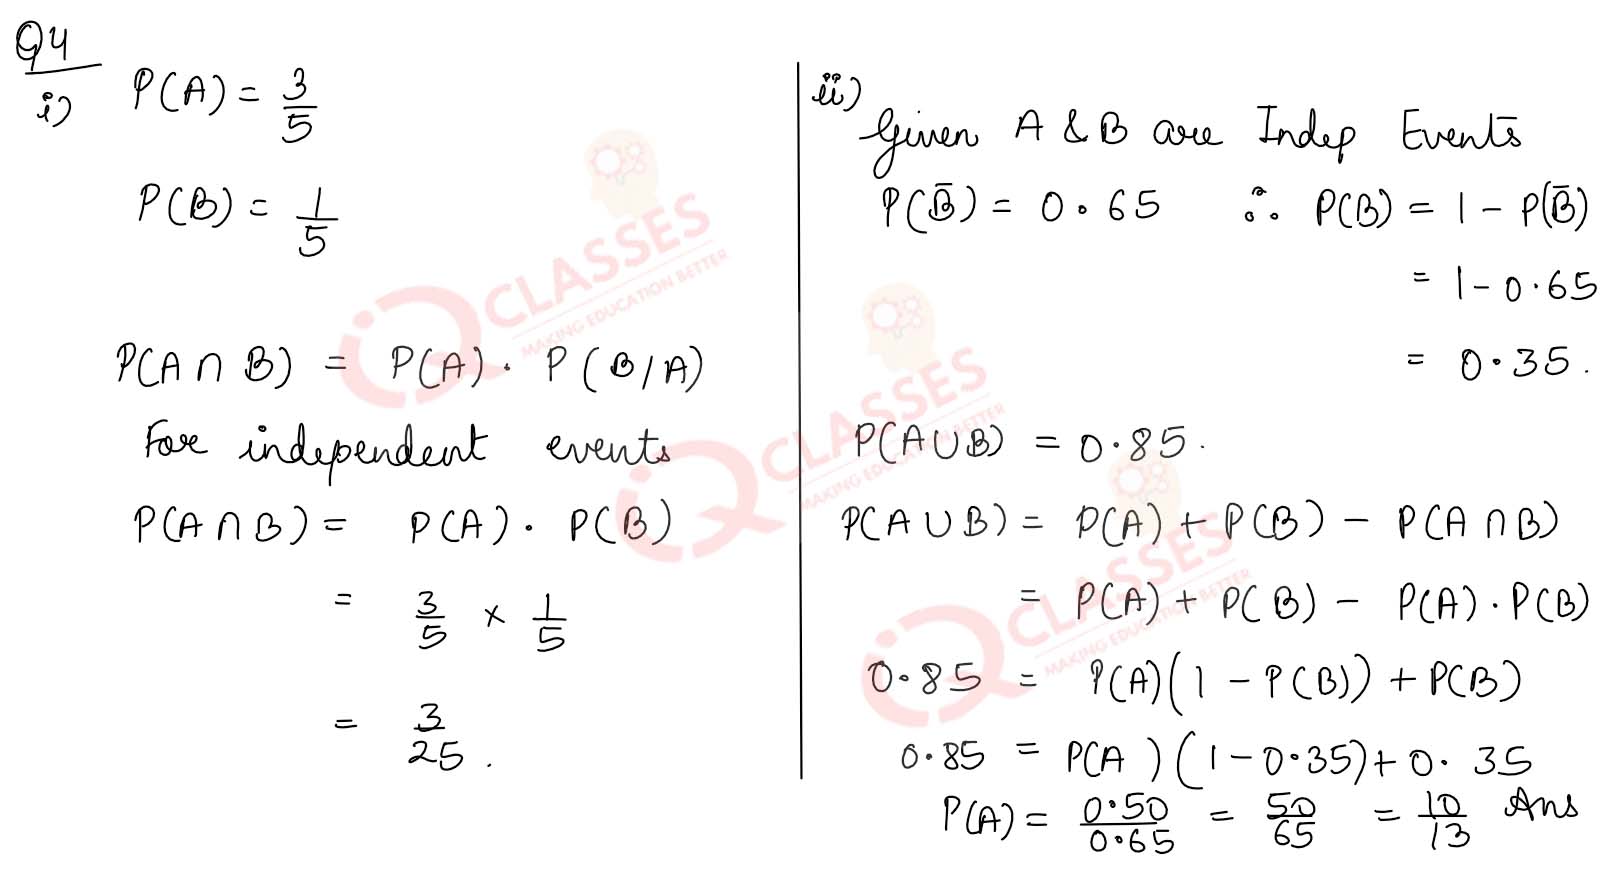 Q4
i) P(A) = 3/5
P(B) = 1/5
P(A ∩ B) = P(A) . P(B/A)
For independent events
P(A ∩ B) = P(A) . P(B)
= 3/5 × 1/5
= 3/25 .
ii)
Given A & B are Indep Events
P(B̄) = 0.65 ∴ P(B) = 1 - P(B̄)
= 1 - 0.65
= 0.35.
P(A∪B) = 0.85.
P(A∪B) = P(A) + P(B) - P(A ∩ B)
= P(A) + P(B) - P(A) . P(B)
0.85 = P(A)(1 - P(B)) + P(B)
0.85 = P(A)(1 - 0.35) + 0.35
P(A) = 0.50/0.65 = 50/65 = 10/13 Ans
iQ CLASSES
MAKING EDUCATION BETTER
iQ CLASSES
MAKING EDUCATION BETTER
iQ CLASSES
MAKING EDUCATION BETTER